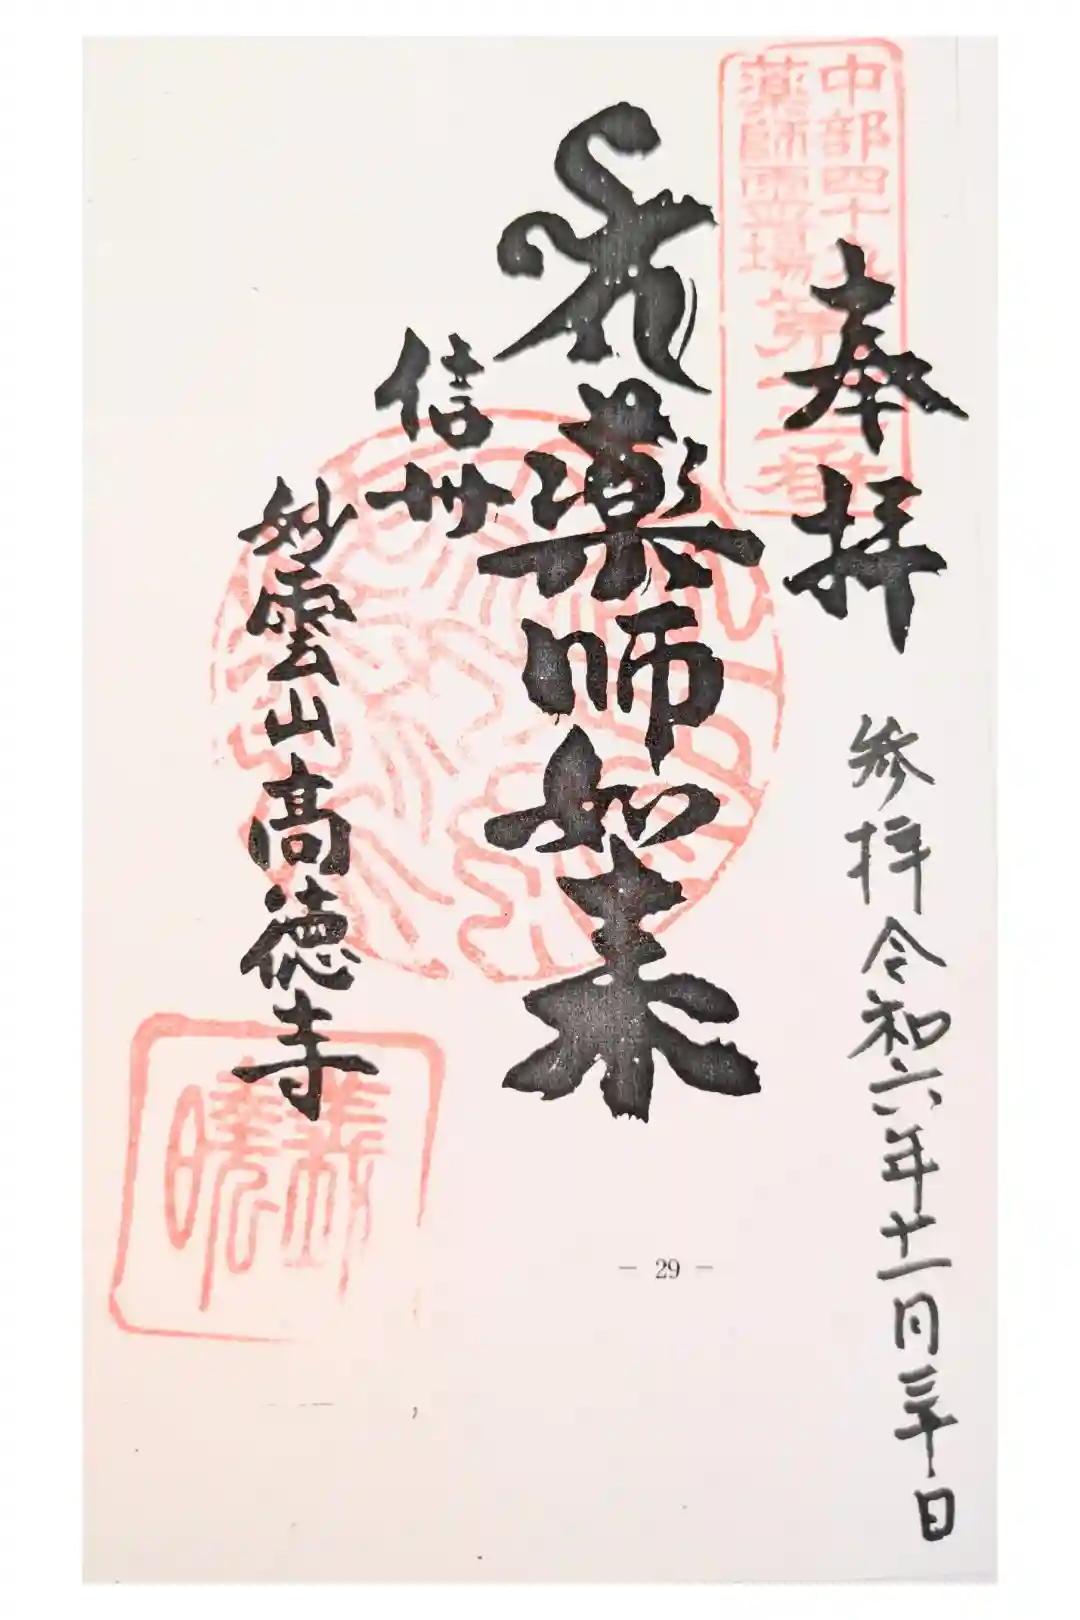 中部四十九
薬師霊場第二番
奉拝
参拝令和六年十一月三十日
薬師如来
信州
妙雲山高徳寺
- 29 -